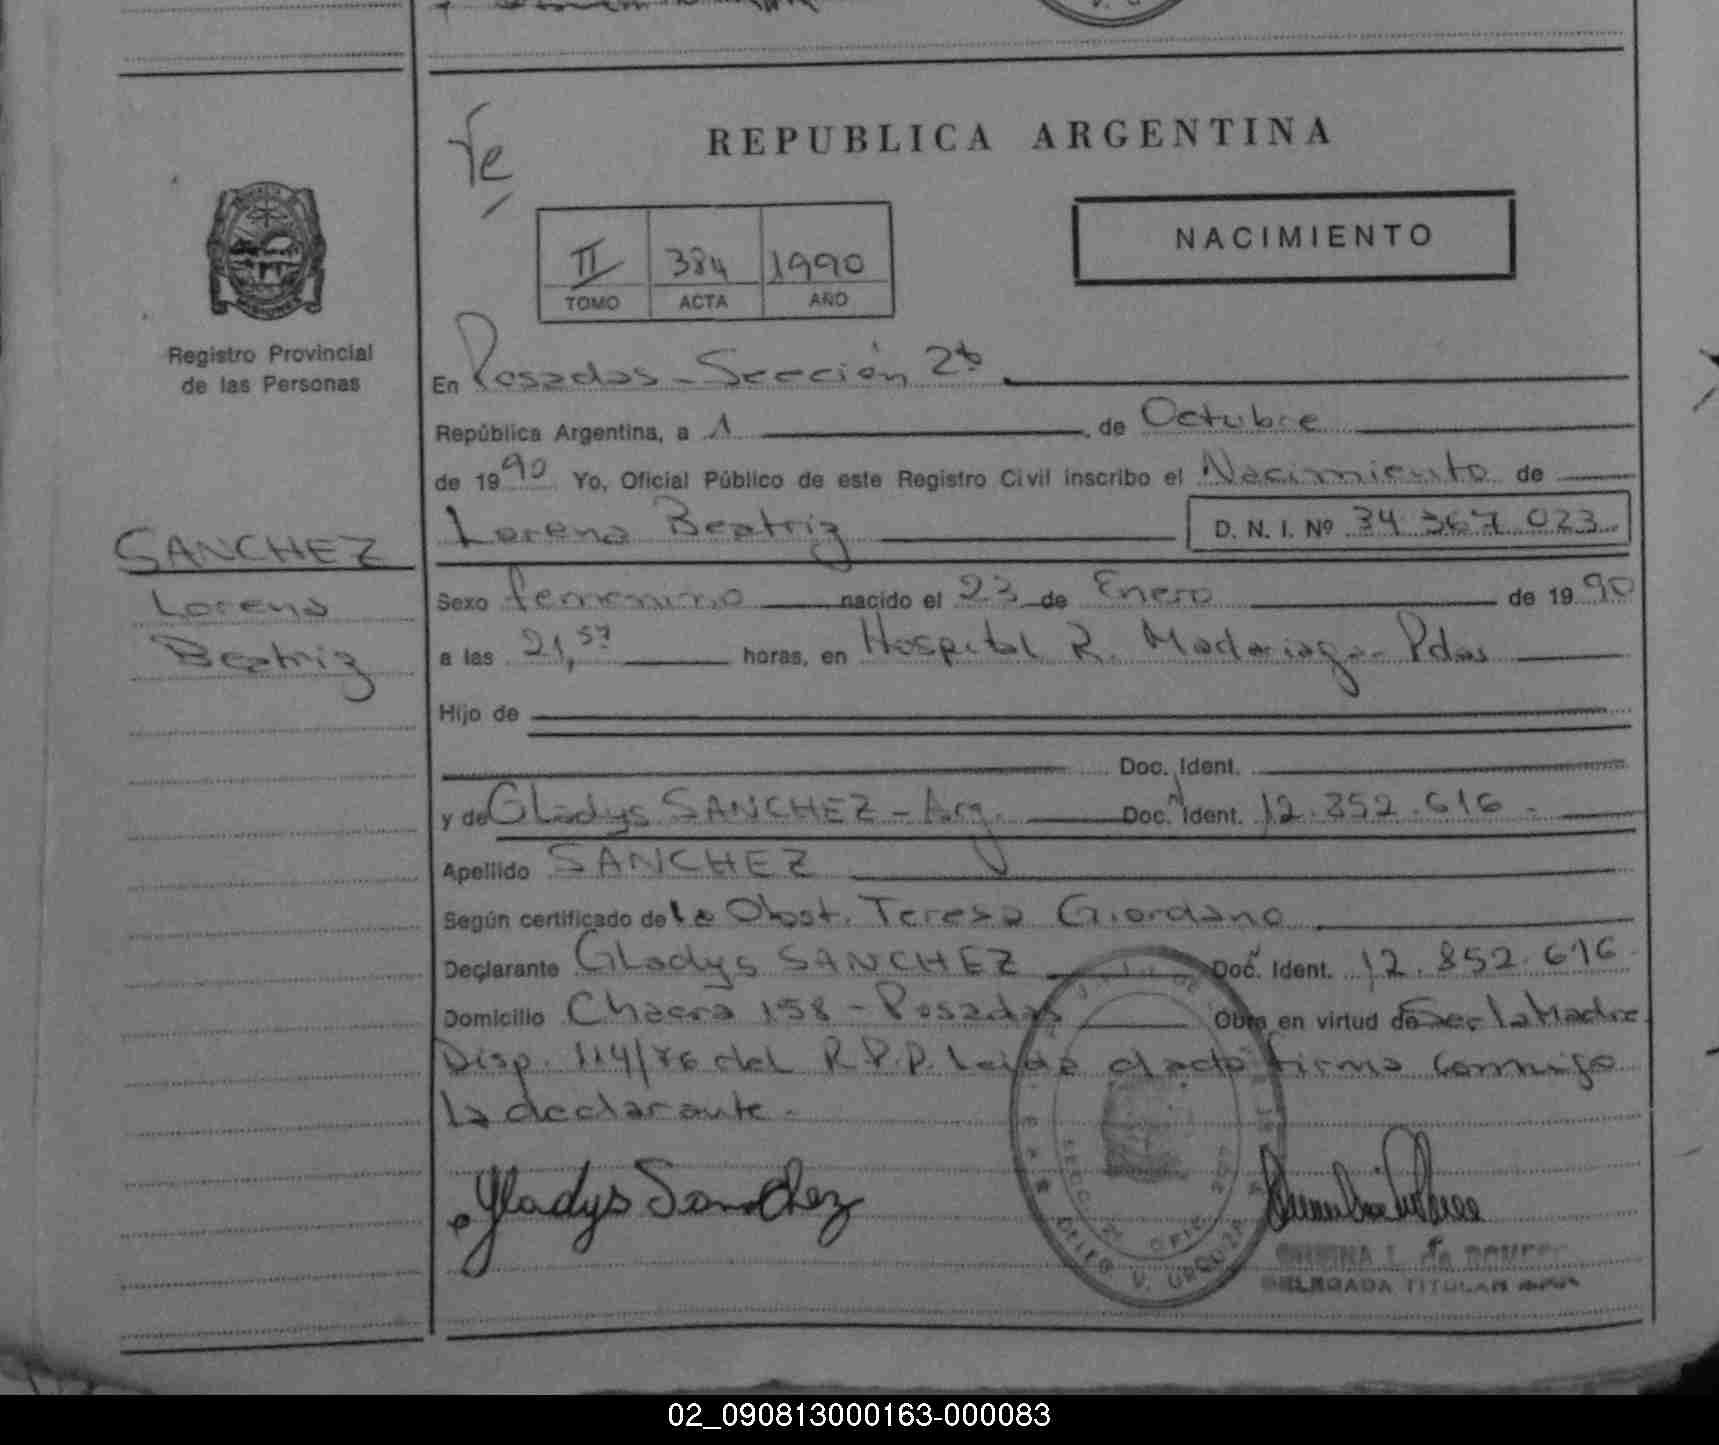 Fe
REPUBLICA ARGENTINA
NACIMIENTO
II 384 1990
TOMO ACTA AÑO
Registro Provincial
de las Personas
En Posadas - Sección 2ª
República Argentina, a 1 de Octubre
de 1990 Yo, Oficial Público de este Registro Civil inscribo el Nacimiento de
Lorena Beatriz D. N. I. Nº 34 367 023
SANCHEZ
Lorena
Beatriz
Sexo femenino nacido el 23 de Enero de 1990
a las 21,57 horas, en Hospital R. Madariaga - Pdas
Hijo de
Doc. Ident.
y de Gladys SANCHEZ - Arg. Doc. Ident. 12.352.616 -
Apellido SANCHEZ
Según certificado de la Obst. Teresa Giordano
Declarante Gladys SANCHEZ Doc. Ident. 12.852.616
Domicilio Chacra 158 - Posadas Obra en virtud de Ser la Madre
Disp. 114/76 del R.P.P. Leida el acta firma conmigo
la declarante.
Gladys Sanchez
DELEG V. URQUIZA
DELEGADA TITULAR
02_090813000163-000083